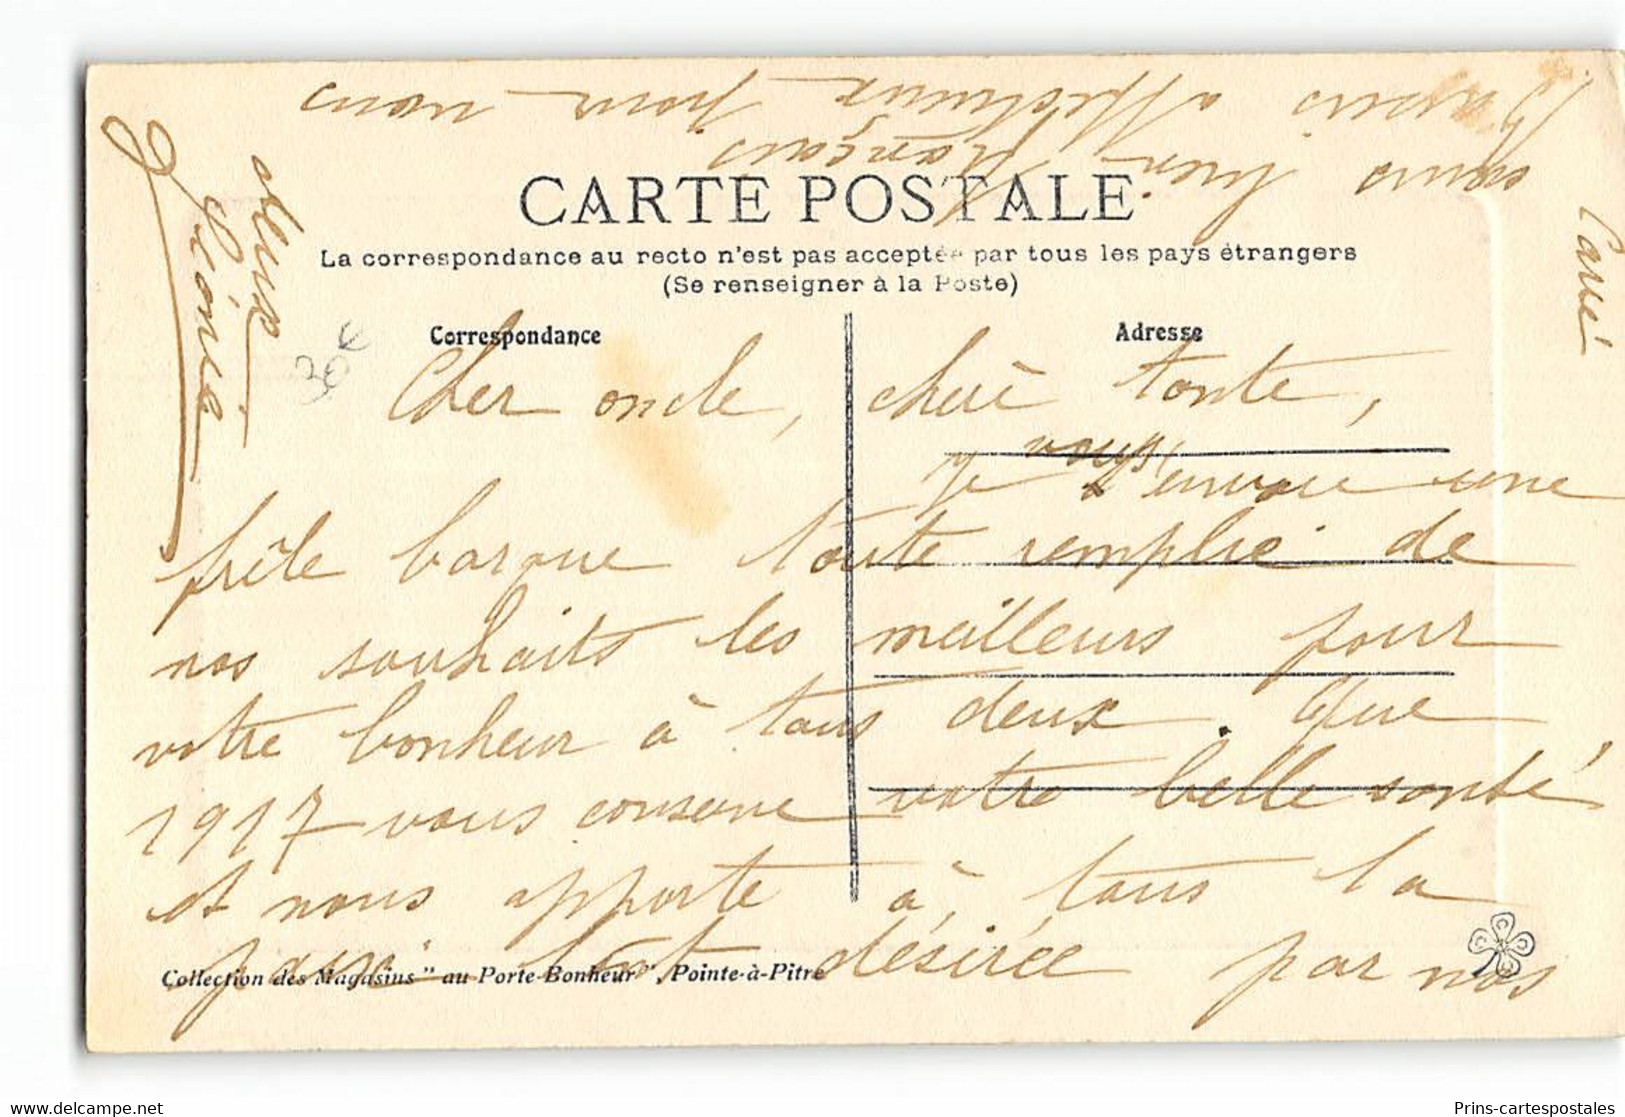 CARTE POSTALE
La correspondance au recto n'est pas acceptée par tous les pays étrangers
(Se renseigner à la Poste)
Correspondance
Adresse
30€
Cher oncle, cherè tante,
Je vous envoie une
frêle barque toute remplie de
nos souhaits les meilleurs pour
votre bonheur à tous deux. Que
1917 vous conserve votre belle santé
et nous apporte à tous la
paix tant désirée par nos
Collection des Magasins "au Porte-Bonheur", Pointe-à-Pitre
français
Baisers affectueux pour vous
Léonie
delcampe.net
Prins-cartespostales